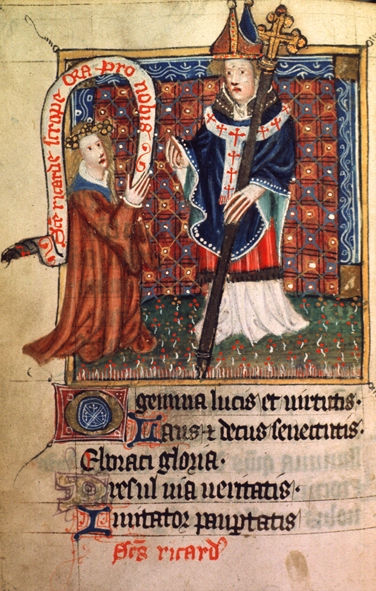 Sc̄e ricarde scrope Ora pro nobis
O gemma lucis et uirtutis·
Laus ⁊ decus senectutis·
Eboraci gloria·
Presul uia ueritatis·
Imitator paup̱tatis
Sc̄s ricard᷒